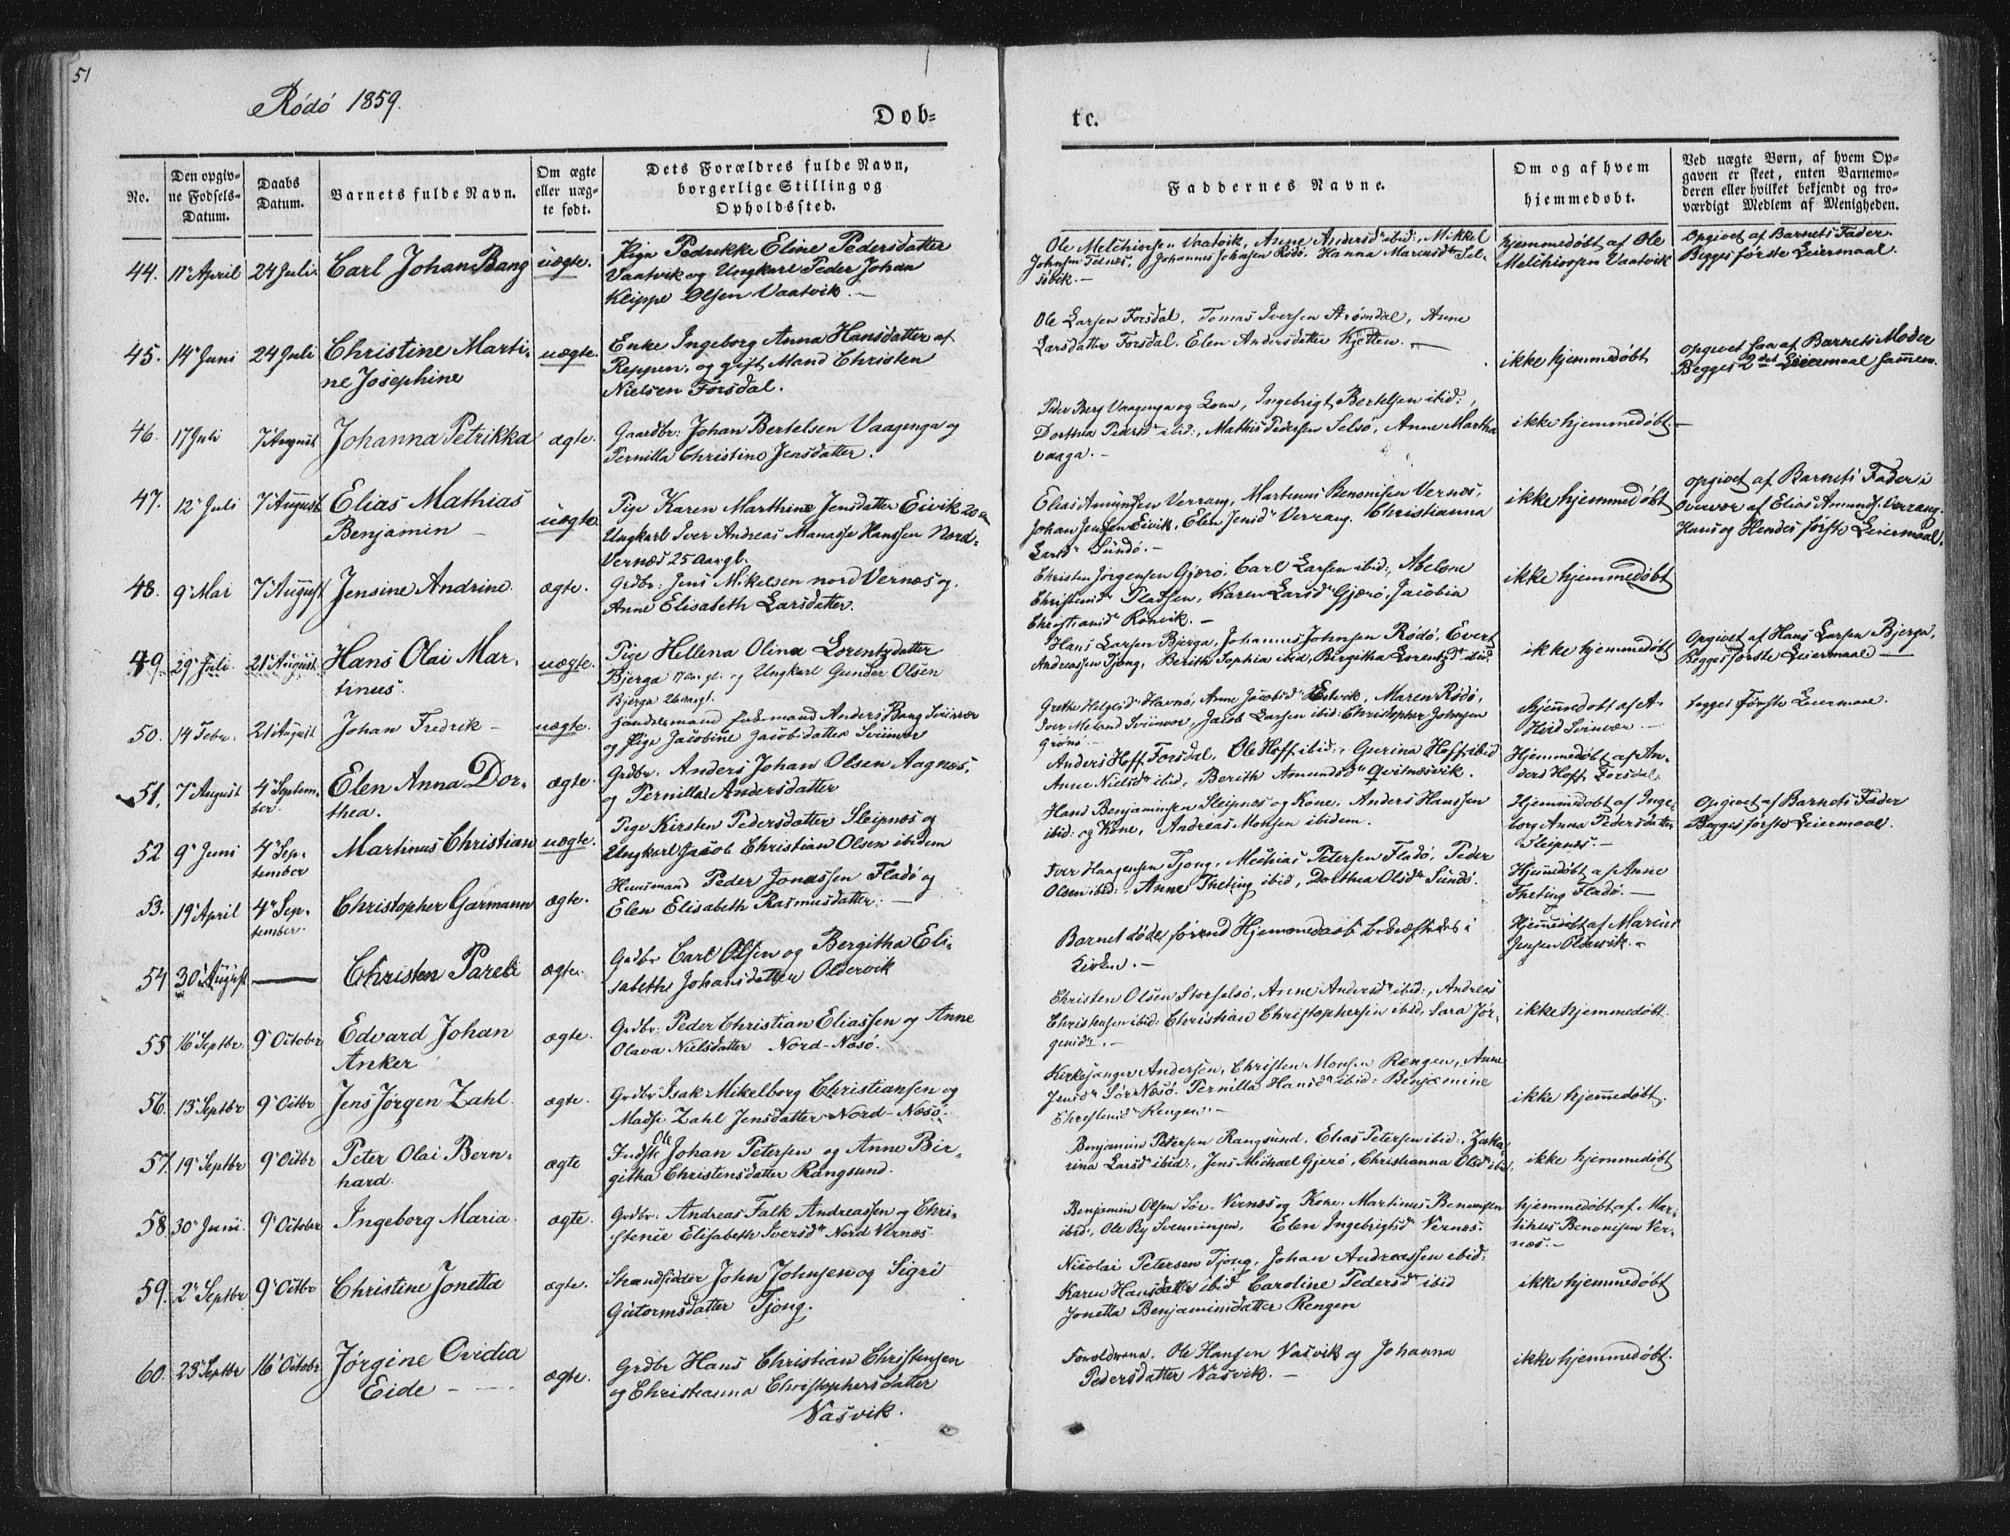 51
Rödö 1859.
Døb-
te.
No.
Den opgiv-
ne Fødsels-
Datum.
Daabs
Datum.
Barnets fulde Navn.
Om ægte
eller uæg-
te født.
Dets Forældres fulde Navn,
borgerlige Stilling og
Opholdssted.
Faddernes Navne.
Om og af hvem
hjemmedøbt.
Ved uægte Børn, af hvem Op-
gaven er skeet, enten Barnemo-
deren eller hvilket bekjendt og tro-
værdigt Medlem af Menigheden.
44. 11te April 24 Juli Carl Johan Bang uægte.
Pige Pedrikke Eline Pedersdatter
Vaatvik og Ungkarl Peder Johan
Klippe Olsen Vaatvik. —
Ole Melchiorsen Vaatvik, Anne Andersdr ibid: Mikkel
Johnsen Telnæs, Johannes Johnsen Rödö, Hanna Marcusdr Sel-
søvik. —
hjemmedøbt af Ole
Melchiorsen Vaatvik
Opgivet af Barnets Fader.
Begges første Leiermaal.
45. 14 Juni 24 Juli Christine Marti-
ne Josephine
uægte.
Enke Ingeborg Anna Hansdatter af
Reppen, og gift Mand Christen
Nielsen Forsdal.
Ole Larsen Forsdal, Tomas Iversen Arömdal, Anne
Larsdatter Forsdal. Elen Andersdatter Kjetten. —
ikke hjemmedøbt
opgivet saa af Barnets Moder
Begges 2det Leiermaal sammen.
46. 17 Juli 7 August Johanna Petrikka ægte.
Gaardbr: Johan Bertelsen Vaagenga og
Pernilla Christine Jensdatter.
Peder Berg Vaagenga og Kone, Ingebrigt Bertelsen ibid:,
Dorthea Pedersdr ibid:, Mathis Pedersen Selsö, Anne Martha
Vaaga. —
ikke hjemmedøbt. —
47. 12 Juli 7 August Elias Mathias
Benjamin —
uægte.
Pige Karen Marthine Jensdatter Eivik 20
Ungkarl Iver Andreas Manasse Hanssen Nord-
Vernæs 25 aargl.
Elias Amundsen Verrang, Martinus Benonisen Vernæs,
Johan Jensen Eivik, Elen Jensdr Verrang. Christianna
Larsdr Sundö. —
ikke hjemmedøbt
opgivet af Barnets Fader i
Overvær af Elias Amunds. Verrang.
Hans og Hendes første Leiermaal.
48. 9 Mai 7 August Jensine Andrine. ægte.
Grdbr: Jens Mikelsen nord Vernæs og
Anne Elisabeth Larsdatter.
Christen Jörgensen Gjærö, Carl Larsen ibid:, Abelone
Christensdr Pladsen, Karen Larsdr Gjærö, Jacobia
Christiansdr Rönvik. —
ikke hjemmedøbt
49. 29 Juli. 21 August Hans Olai Mar-
tinus
uægte.
Pige Hellena Olina Lorentzdatter
Bjerga 17 aargl. og Ungkarl Gunder Olsen
Bjerga 26 aargl.
Hans Larsen Bjerga, Johannes Johnsen Rödö, Evert
Andreassen Tjong, Berith Sophia ibid, Bergitha Lorentzdr ibid.
ikke hjemmedøbt
Opgivet af Hans Larsen Bjerga,
Begges første Leiermaal —
50. 14 Febr. 21 August Johan Fredrik — uægte.
Handelsmand Anders Bang Sviinvær
og Pige Jacobine Jacobsdatter Sviinvær
Grethe Helgesdr Havnö, Anne Jacobsdr Esvik, Maren Rödö,
Iver Meland Sviinvær, Jacob Larsen ibid: Christopher Johnsen
Grönö —
hjemmedøbt af A.
Hvid Svinvær. —
begges første Leiermaal.
51. 7 August 4 Septem-
ber.
Elen Anna Dor-
thea.
ægte.
Grdbr. Anders Johan Olsen Aagnæs,
og Pernilla Andersdatter
Anders Hoff Forsdal, Ole Hoff ibid:, Gurina Hoff ibid
Anne Nielsdr ibid, Berith Amundsdr Qvitnæsvik.
Hjemmedøbt af An-
ders Hoff, Forsdal.
52 9 Juni 4 Sep-
tember
Martinus Christian uægte.
Pige Kirsten Pedersdatter Sleipnæs og
Ungkarl Jacob Christian Olsen ibidem
Hans Benjaminsen Sleipnæs og Kone, Anders Hanssen
ibid: og Kone, Andreas Monsen ibidem.
Hjemmedøbt af Inge-
borg Anna Pedersdatter
Sleipnæs. —
Opgivet af Barnets Fader
Begges første Leiermaal.
53. 19 April 4 Sep-
tember.
Christopher Garmann ægte.
Huusmand Peder Jonassen Fladö og
Elen Elisabeth Rasmusdatter: —
Iver Haagensen Tjong, Mathias Petersen Fladö, Peder
Olsen ibid:, Anne Theting ibid, Dorthea Olsdr Sundö.
Hjemmedøbt af Anne
Theting Fladö. —
54 30 August — Christen Pareli ægte.
Grdbr Carl Olsen og Bergitha Eli-
sabeth Johansdatter Oldervik
Barnet døde førend Hjemmedaab bekræftedes i
Kirken. —
Hjemmedøbt af Marius
Jensen Oldervik. —
55 16 Septbr. 9 October Edvard Johan
Anker
ægte.
Grdbr: Peder Christian Eliassen og Anne
Olava Nielsdatter Nord-Næsö.
Christen Olsen Storselsö, Anne Andersdr ibid:, Andreas
Christensen ibid: Christian Christophersen ibid, Sara Jör-
gensdr. —
ikke hjemmedøbt.
56. 13 Septbr 9 Octbr Jens Jörgen Zahl. ægte.
Grdbr Isak Mikelborg Christiansen og
Madse Zahl Jensdatter Nord-Næsö.
Kirkesanger Andersen, Christen Monsen Rengen, Anne
Jensdr Sör Næsö. Pernilla Hansdr ibid: Benjamine
Christensdr Rengen. —
ikke hjemmedøbt.
57. 19 Septbr 9 Octbr Peter Olai Bern-
hard.
ægte
Indst: Ole Johan Petersen og Anne Bir-
githa Christensdatter Rangsund.
Benjamin Petersen Rangsund, Elias Petersen ibid:, Zaka-
rina Larsdr ibid:, Jens Michael Gjerö, Christianna Olsdr ibid.
ikke hjemmedøbt
58 30 Juni. 9 October Ingeborg Maria. ægte.
Grdbr: Andreas Falk Andreassen og Chri-
stenie Elisabeth Iversdr Nord Vernæs
Benjamin Olsen Sör-Vernæs og Kone. Martinus Benonisen
ibid:, Ole By Svenningen, Elen Ingebrigtsdr Vernæs.
hjemmedøbt af Mar-
Benonisen Ver-
næs. —
59. 2 Septbr 9 Octbr Christine Jonetta ægte.
Strandsidder John Johnsen og Sigri
Gutormsdatter Tjong.
Nicolai Petersen Tjong, Johan Andreassen ibid:
Karen Hansdatter ibid Caroline Pedersdr ibid
Jonetta Benjaminsdatter Rengen
ikke hjemmedøbt
60. 23 Septbr 16 Octobr Jørgine Ovidia
Eide —
ægte.
Grdbr Hans Christian Christensen
og Christianna Christophersdatter
Vasvik.
Forældrene, Ole Hansen Vasvik og Johanna
Pedersdatter Vasvik. —
ikke hjemmedøbt.